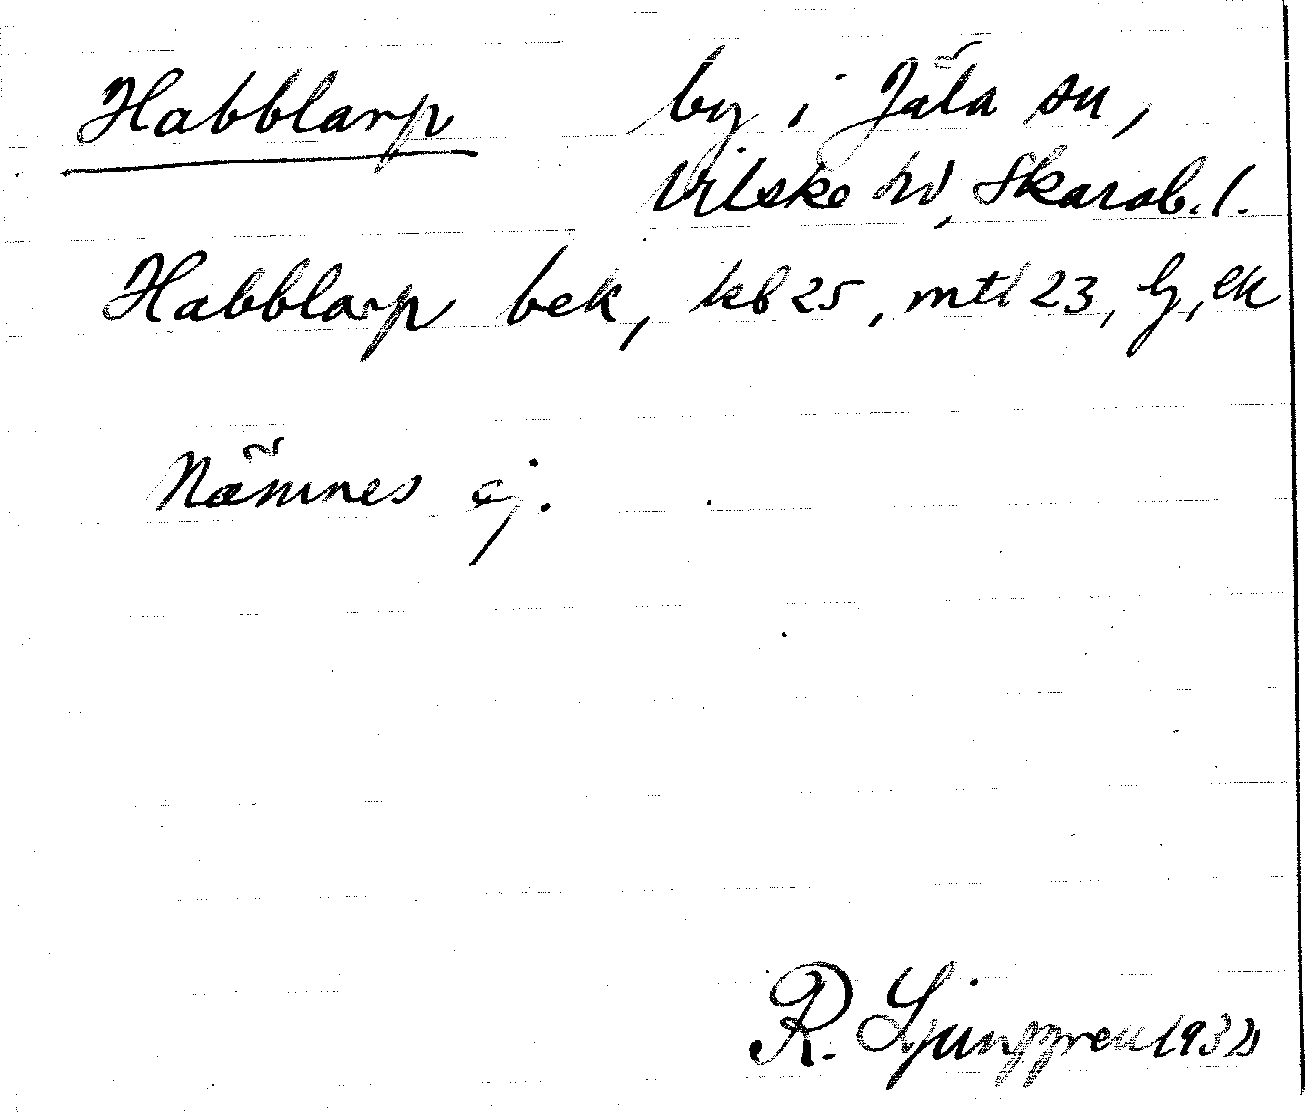 Habblarp by i Jäla sn,
Vilske hd, Skarab. l.
Habblarp bek, kb 25, mtl 23, Lj, ek
Nämnes ej.
R. Ljunggren 1932